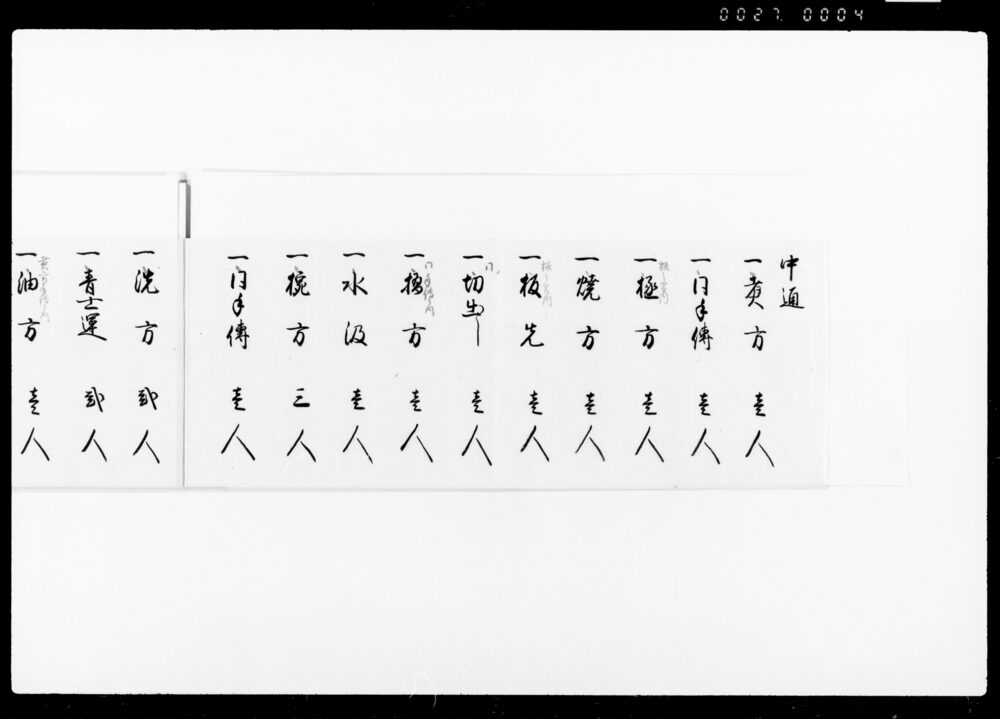 0027. 0004
中通
一煮方 壱人
一同手傳 壱人
一極方 壱人
一焼方 壱人
一板先 壱人
一切出し 壱人
方 壱人
一水汲 壱人
一椀方 三人
一同手傳 壱人
一洗方 弐人
一青士運 弐人
一油方 壱人